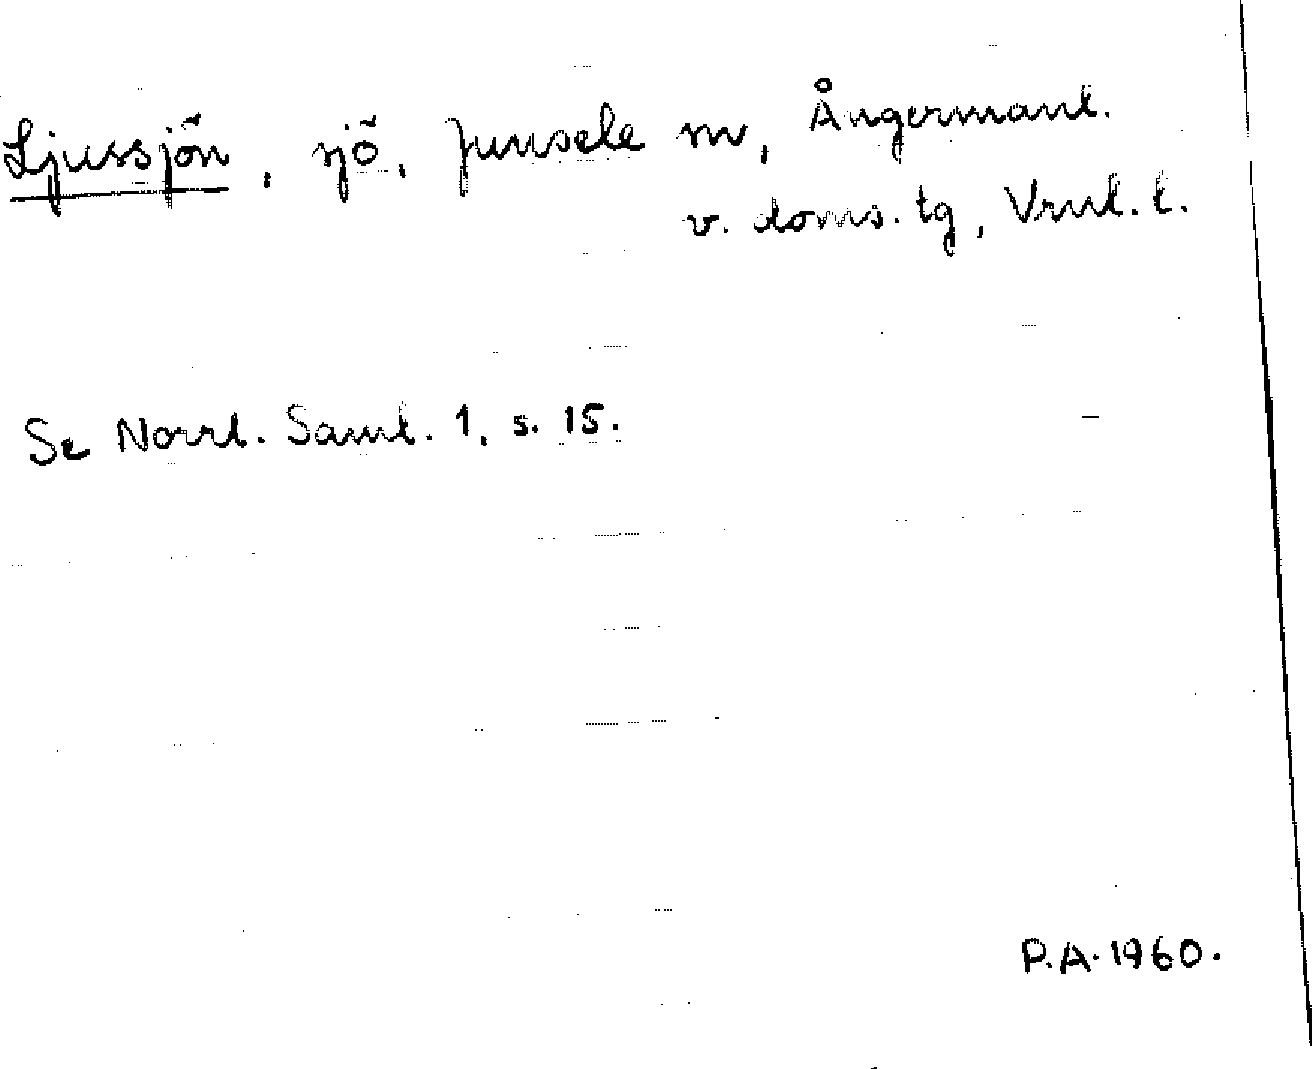 Ljussjön, sjö, Junsele sn, Ångermanl.
v. doms. tg, Vrnl. l.
Se Norrl. Saml. 1, s. 15.
P.A. 1960.